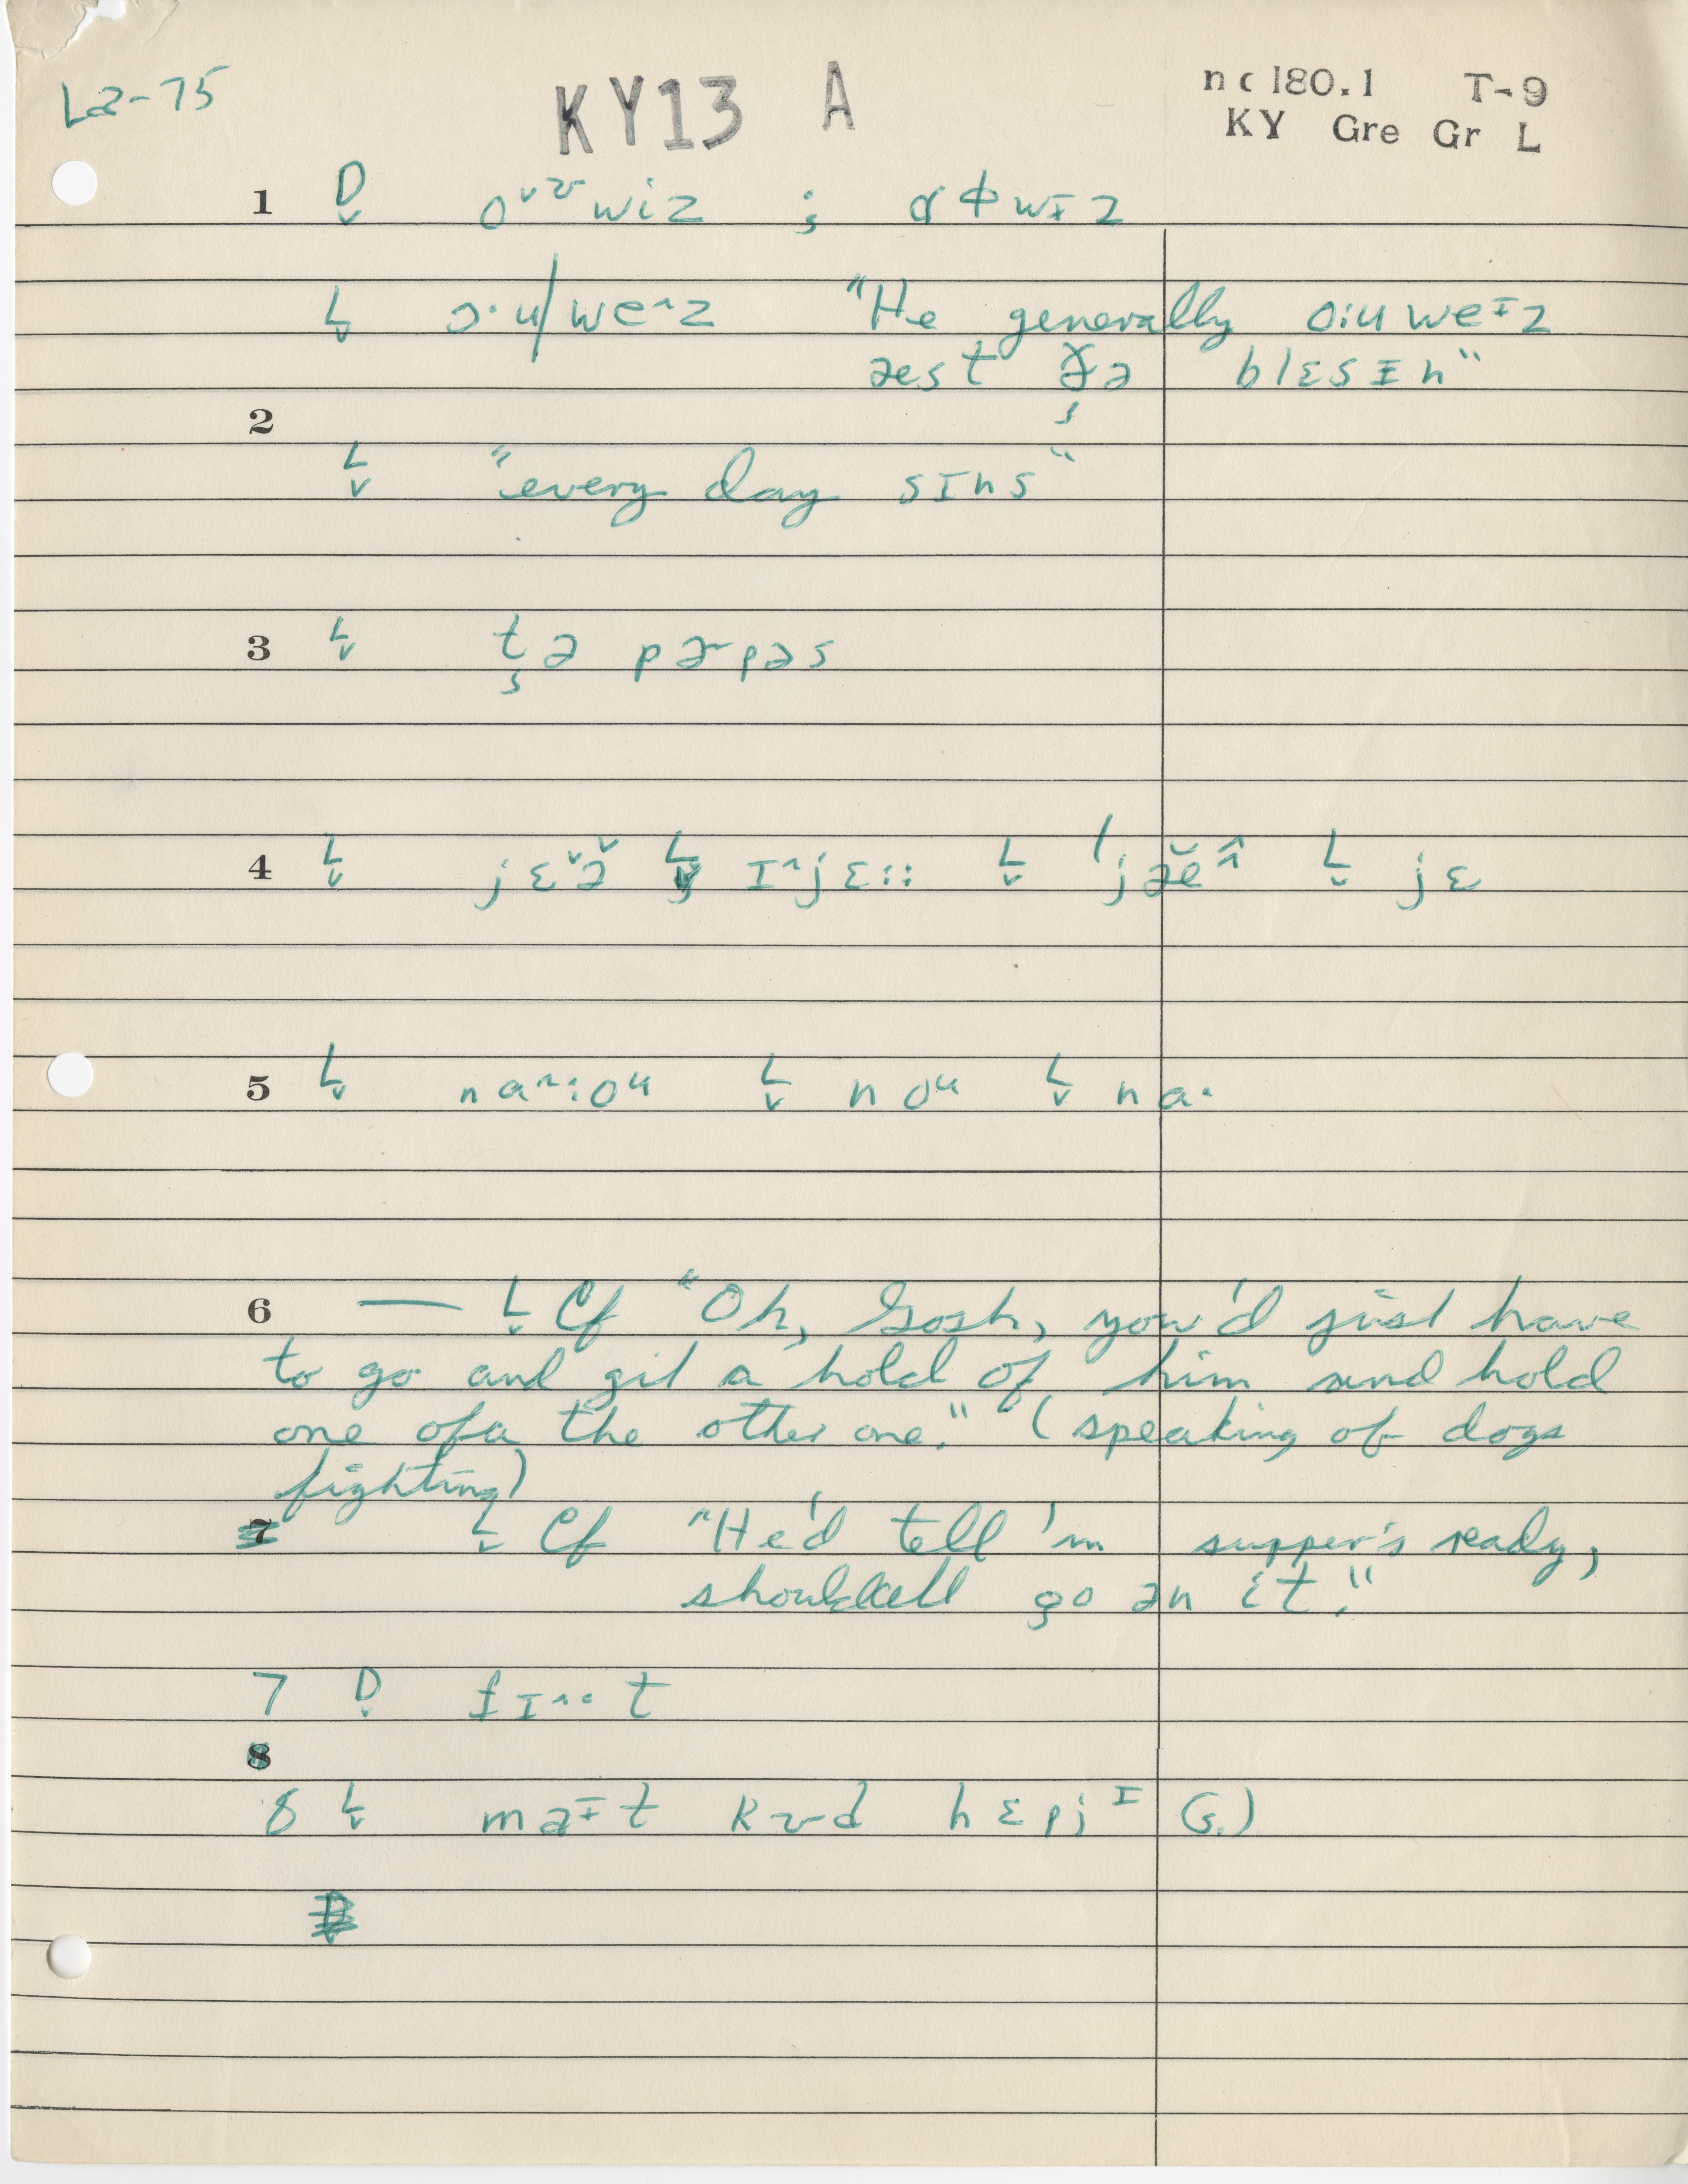 La-75 KY13 A nc180.1 T-9
KY Gre Gr L
1 D wiz ; wɪz
L ɔ·u/weˆz "He generally weɪz
æst ðə blɛsɪn"
2
L "every day sɪns"
3 L tə pɚpəs
4 L jɛ L ɪˆjɛ:: L L jɛ
5 L L noᵘ L na·
6 — L Cf "Oh, Gosh, you'd just have
to go and git a hold of him and hold
one ofa the other one." (speaking of dogs
fighting)
7 L Cf "He'd tell 'm supper's ready,
go ən it."
7 D t
8
8 L maɪt hɛpjᴵ (s.)